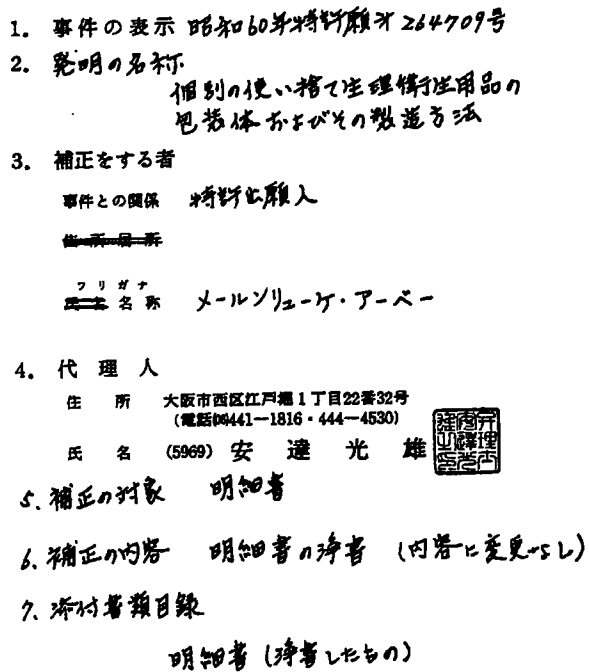 1. 事件の表示 昭和60年特許願才264709号
2. 発明の名称
個別の使い捨て生理衛生用品の
包装体およびその製造方法
3. 補正をする者
事件との関係 特許出願人
住所居所
フリガナ
氏名 名称 メールンリューケ・アーベー
4. 代理人
住所 大阪市西区江戸堀1丁目22番32号
(電話(06)441-1816・444-4530)
氏名 (5969) 安達光雄
5. 補正の対象 明細書
6. 補正の内容 明細書の浄書 (内容に変更なし)
7. 添付書類目録
明細書 (浄書したもの)